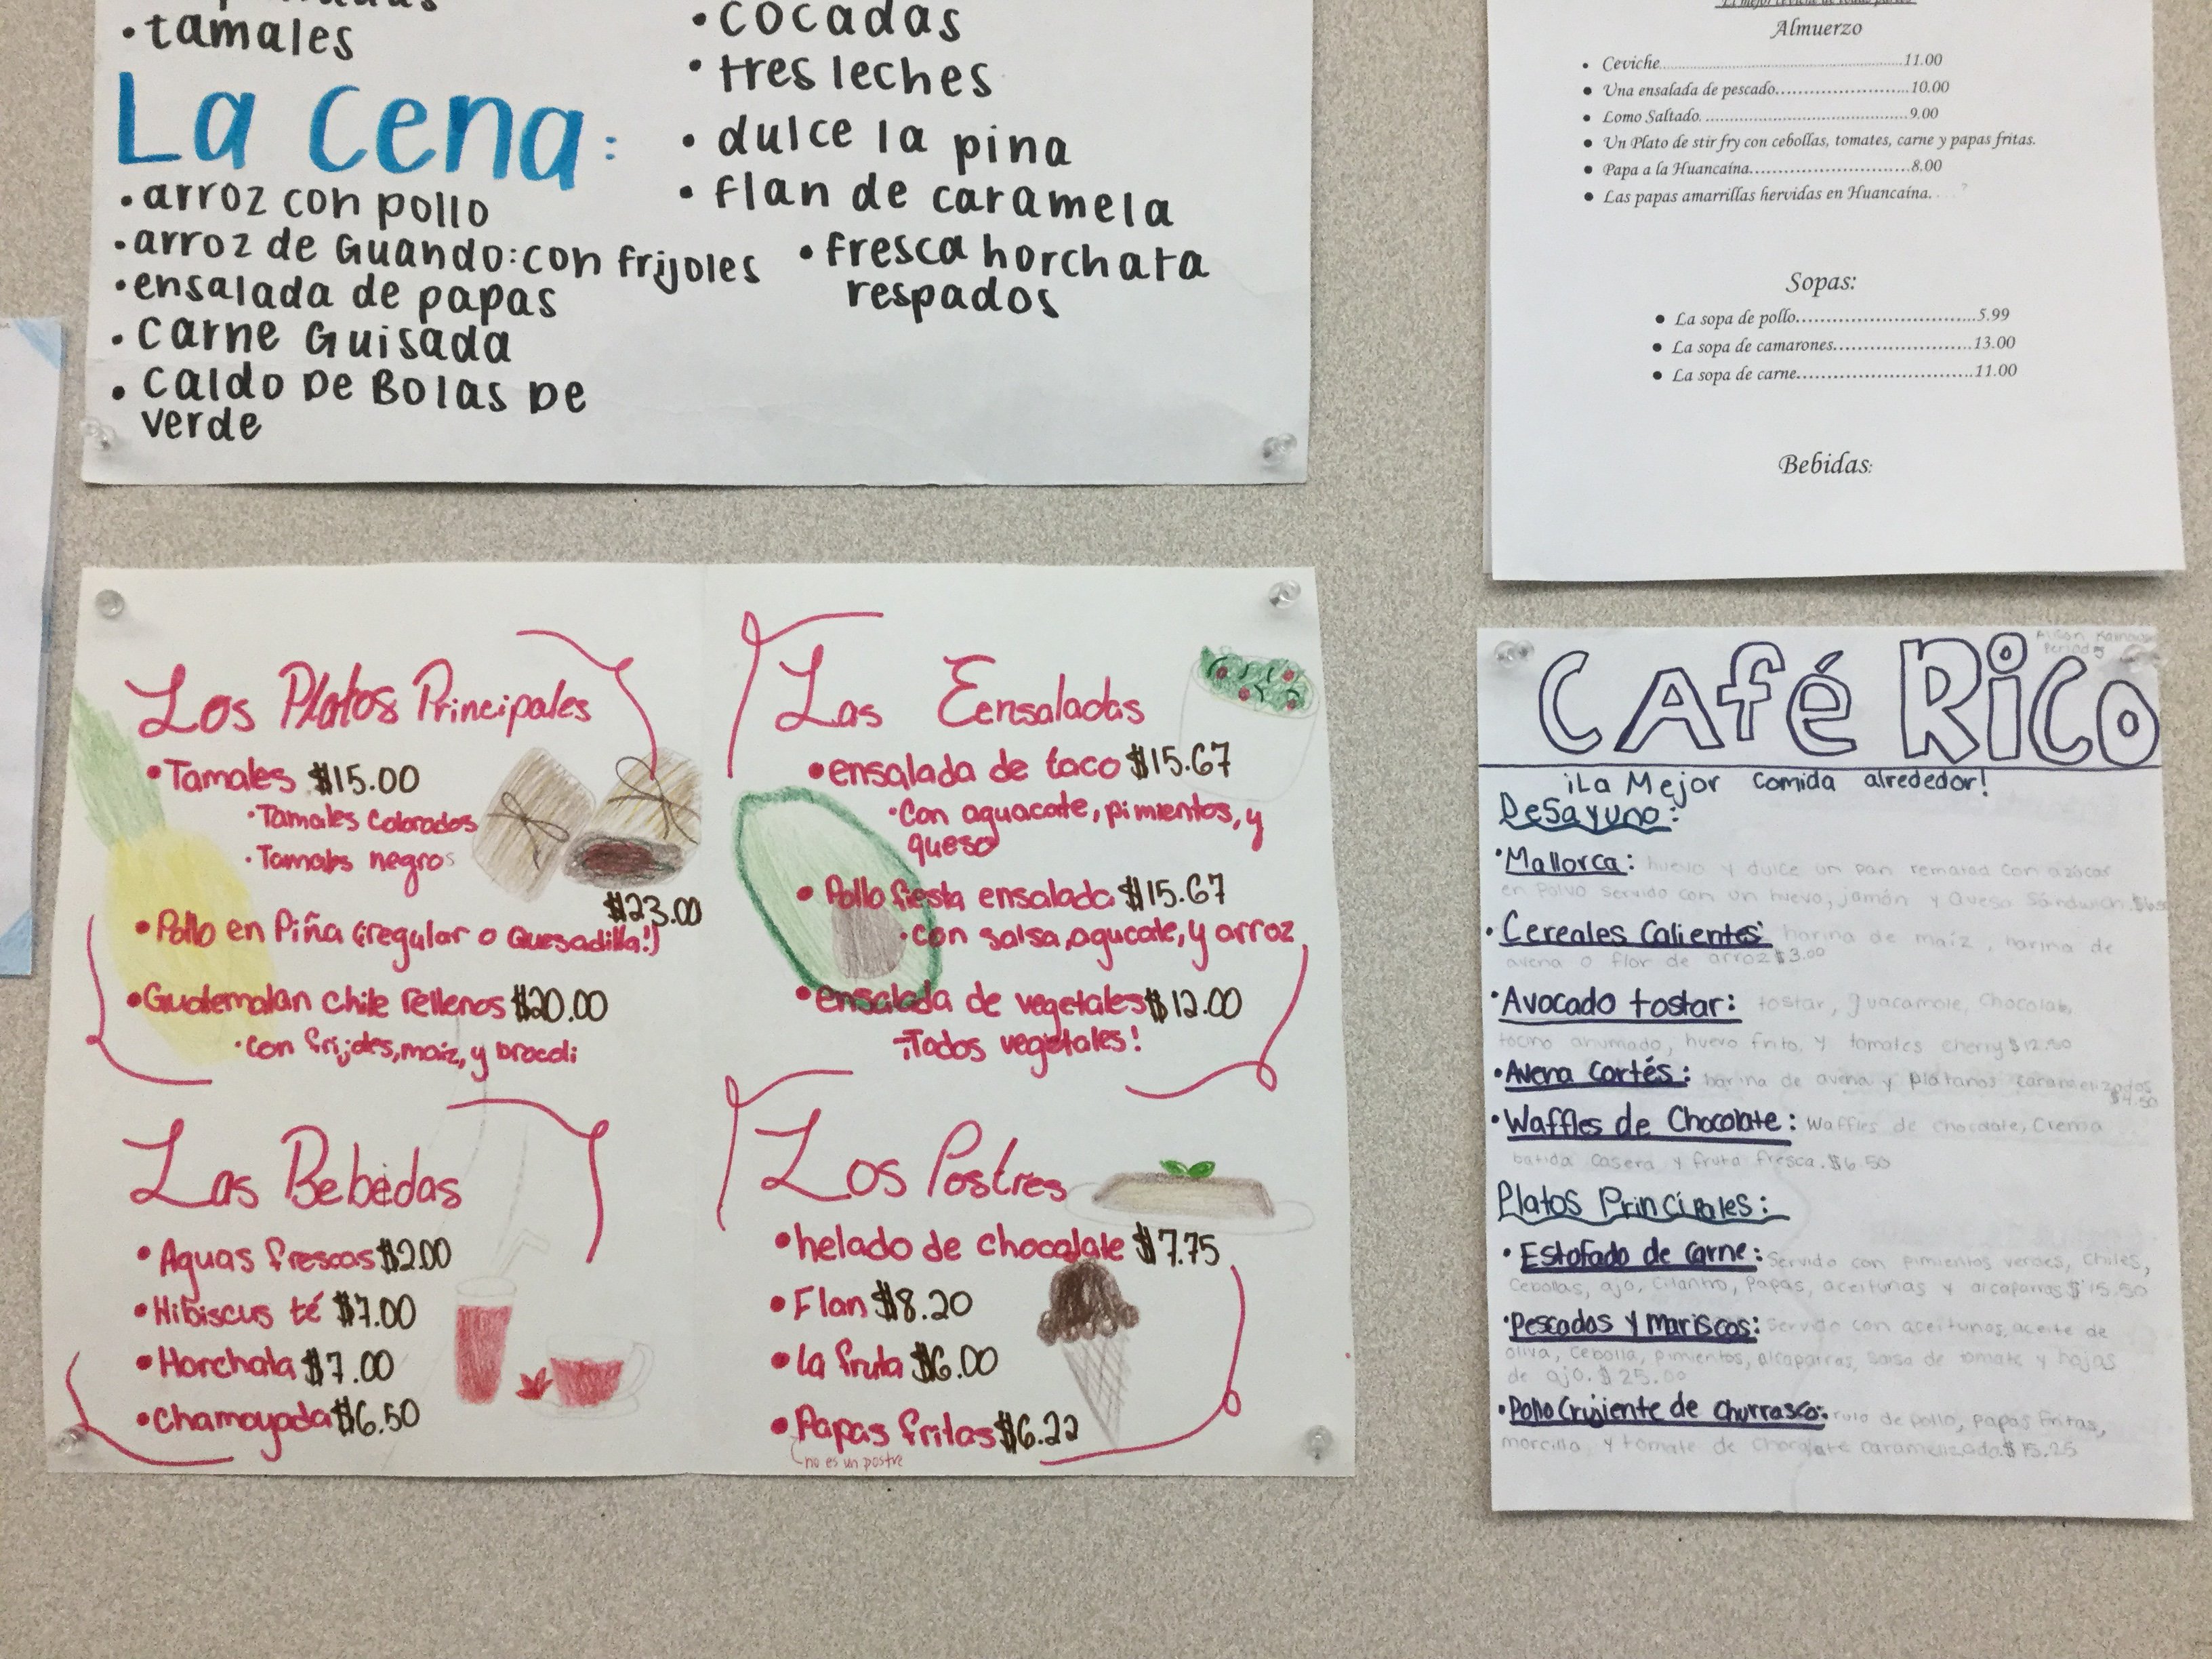 • tamales
La Cena:
• arroz con pollo
• arroz de Guando: con frijoles
• ensalada de papas
• carne Guisada
• caldo De Bolas De
verde
• cocadas
• tres leches
• dulce la pina
• flan de caramela
• fresca horchata
respados
Almuerzo
• Ceviche...11.00
• Una ensalada de pescado...10.00
• Lomo Saltado...9.00
• Un Plato de stir fry con cebollas, tomates, carne y papas fritas.
• Papa a la Huancaína...8.00
• Las papas amarrillas hervidas en Huancaína....?
Sopas:
• La sopa de pollo...5.99
• La sopa de camarones...13.00
• La sopa de carne...11.00
Bebidas:
Los Platos Principales
• Tamales $15.00
• Tamales Colorados
• Tamales negros
$23.00
• Pollo en Piña (regular o Quesadilla!)
• Guatemalan chile rellenos $20.00
• con frijoles, maiz, y brocoli
Las Eensaladas
• ensalada de taco $15.67
• Con aguacate, pimientos, y
queso
• Pollo fiesta ensalada $15.67
• con salsa, agucate, y arroz
• ensalada de vegetales $12.00
-¡Todos vegetales!
Las Bebidas
• Aguas frescas $2.00
• Hibiscus té $7.00
• Horchata $7.00
• Chamoyada $6.50
Los Postres
• helado de chocolate $7.75
• Flan $8.20
• la fruta $6.00
• Papas fritas $6.22
no es un postre
Alison
Period 5
CAfé RiCo
¡La Mejor comida alrededor!
Desayuno:
• Mallorca: huevo y dulce un pan con azúcar
en polvo servido con un huevo, jamón y Queso Sándwich.
• Cereales Calientes: harina de maíz, harina de
avena o flor de arroz $3.00
• Avocado tostar: tostar, guacamole, Chocolate,
tocino ahumado, huevo frito, y tomates cherry $12.50
• Avena Cortés: harina de avena y plátanos caramelizados
$4.50
• Waffles de Chocolate: Waffles de chocolate, Crema
batida casera y fruta fresca. $6.50
Platos Principales:
• Estofado de Carne: Servido con pimientos verdes, chiles,
Cebollas, ajo, Cilantro, Papas, aceitunas y alcaparras $15.50
• Pescados y Mariscos: Servido con aceitunas, aceite de
oliva, Cebolla, pimientos, alcaparras, salsa de tomate y hojas
de ajo. $25.00
• Pollo Crujiente de Churrasco: de pollo, Papas Fritas,
morcilla y tomate de chocolate caramelizado. $15.25